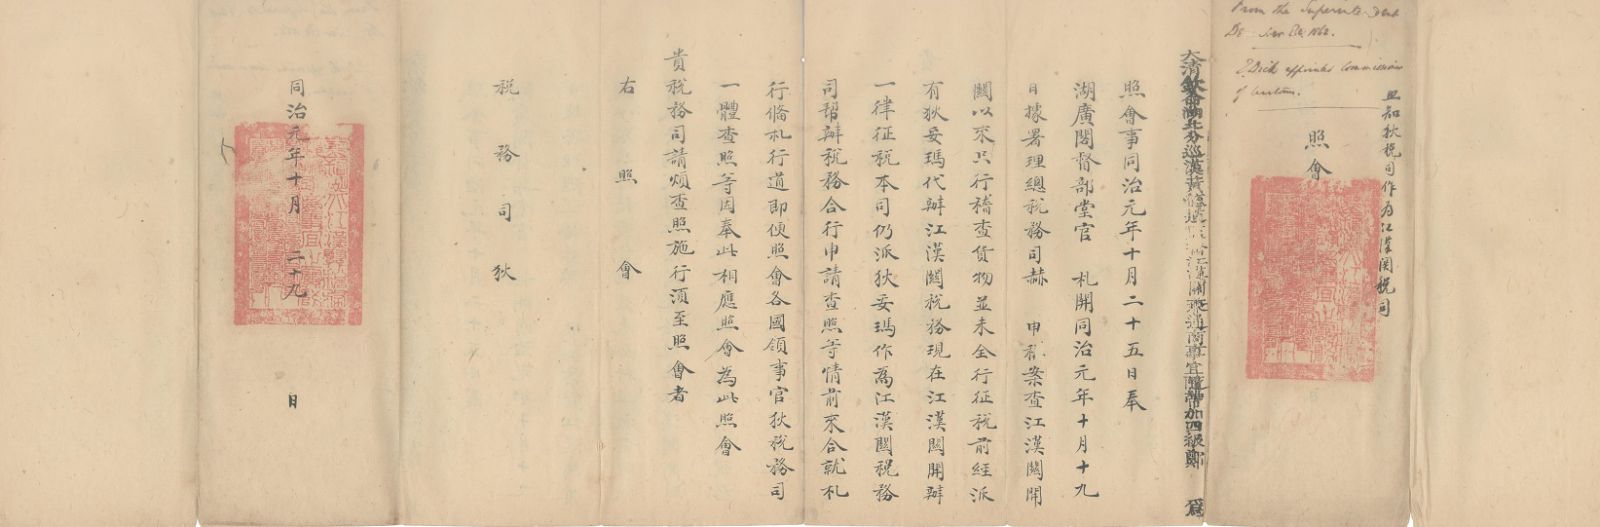 From the Superinte-dent
I. Dick appointed Commissioner
of Customs.
且知狄稅司作為江漢関稅司
照會
大清欽命湖北分巡漢黃德道江漢關兼通商事宜隨帶加四級鄭 為
照會事同治元年十月二十五日奉
湖廣閣督部堂官 札開同治元年十月十九
日據署理總稅務司赫 申稱案查江漢關開
關以來只行稽查貨物並未全行征稅前經派
有狄妥瑪代辦江漢關稅務現在江漢關開辦
一律征稅本司仍派狄妥瑪作為江漢關稅務
司幇辦稅務合行申請查照等情前來合就札
行俻札行道即便照會各國領事官狄稅務司
一體查照等因奉此相應照會為此照會
貴稅務司請煩查照施行須至照會者
右照會
稅務司狄
同治元年十月二十九日